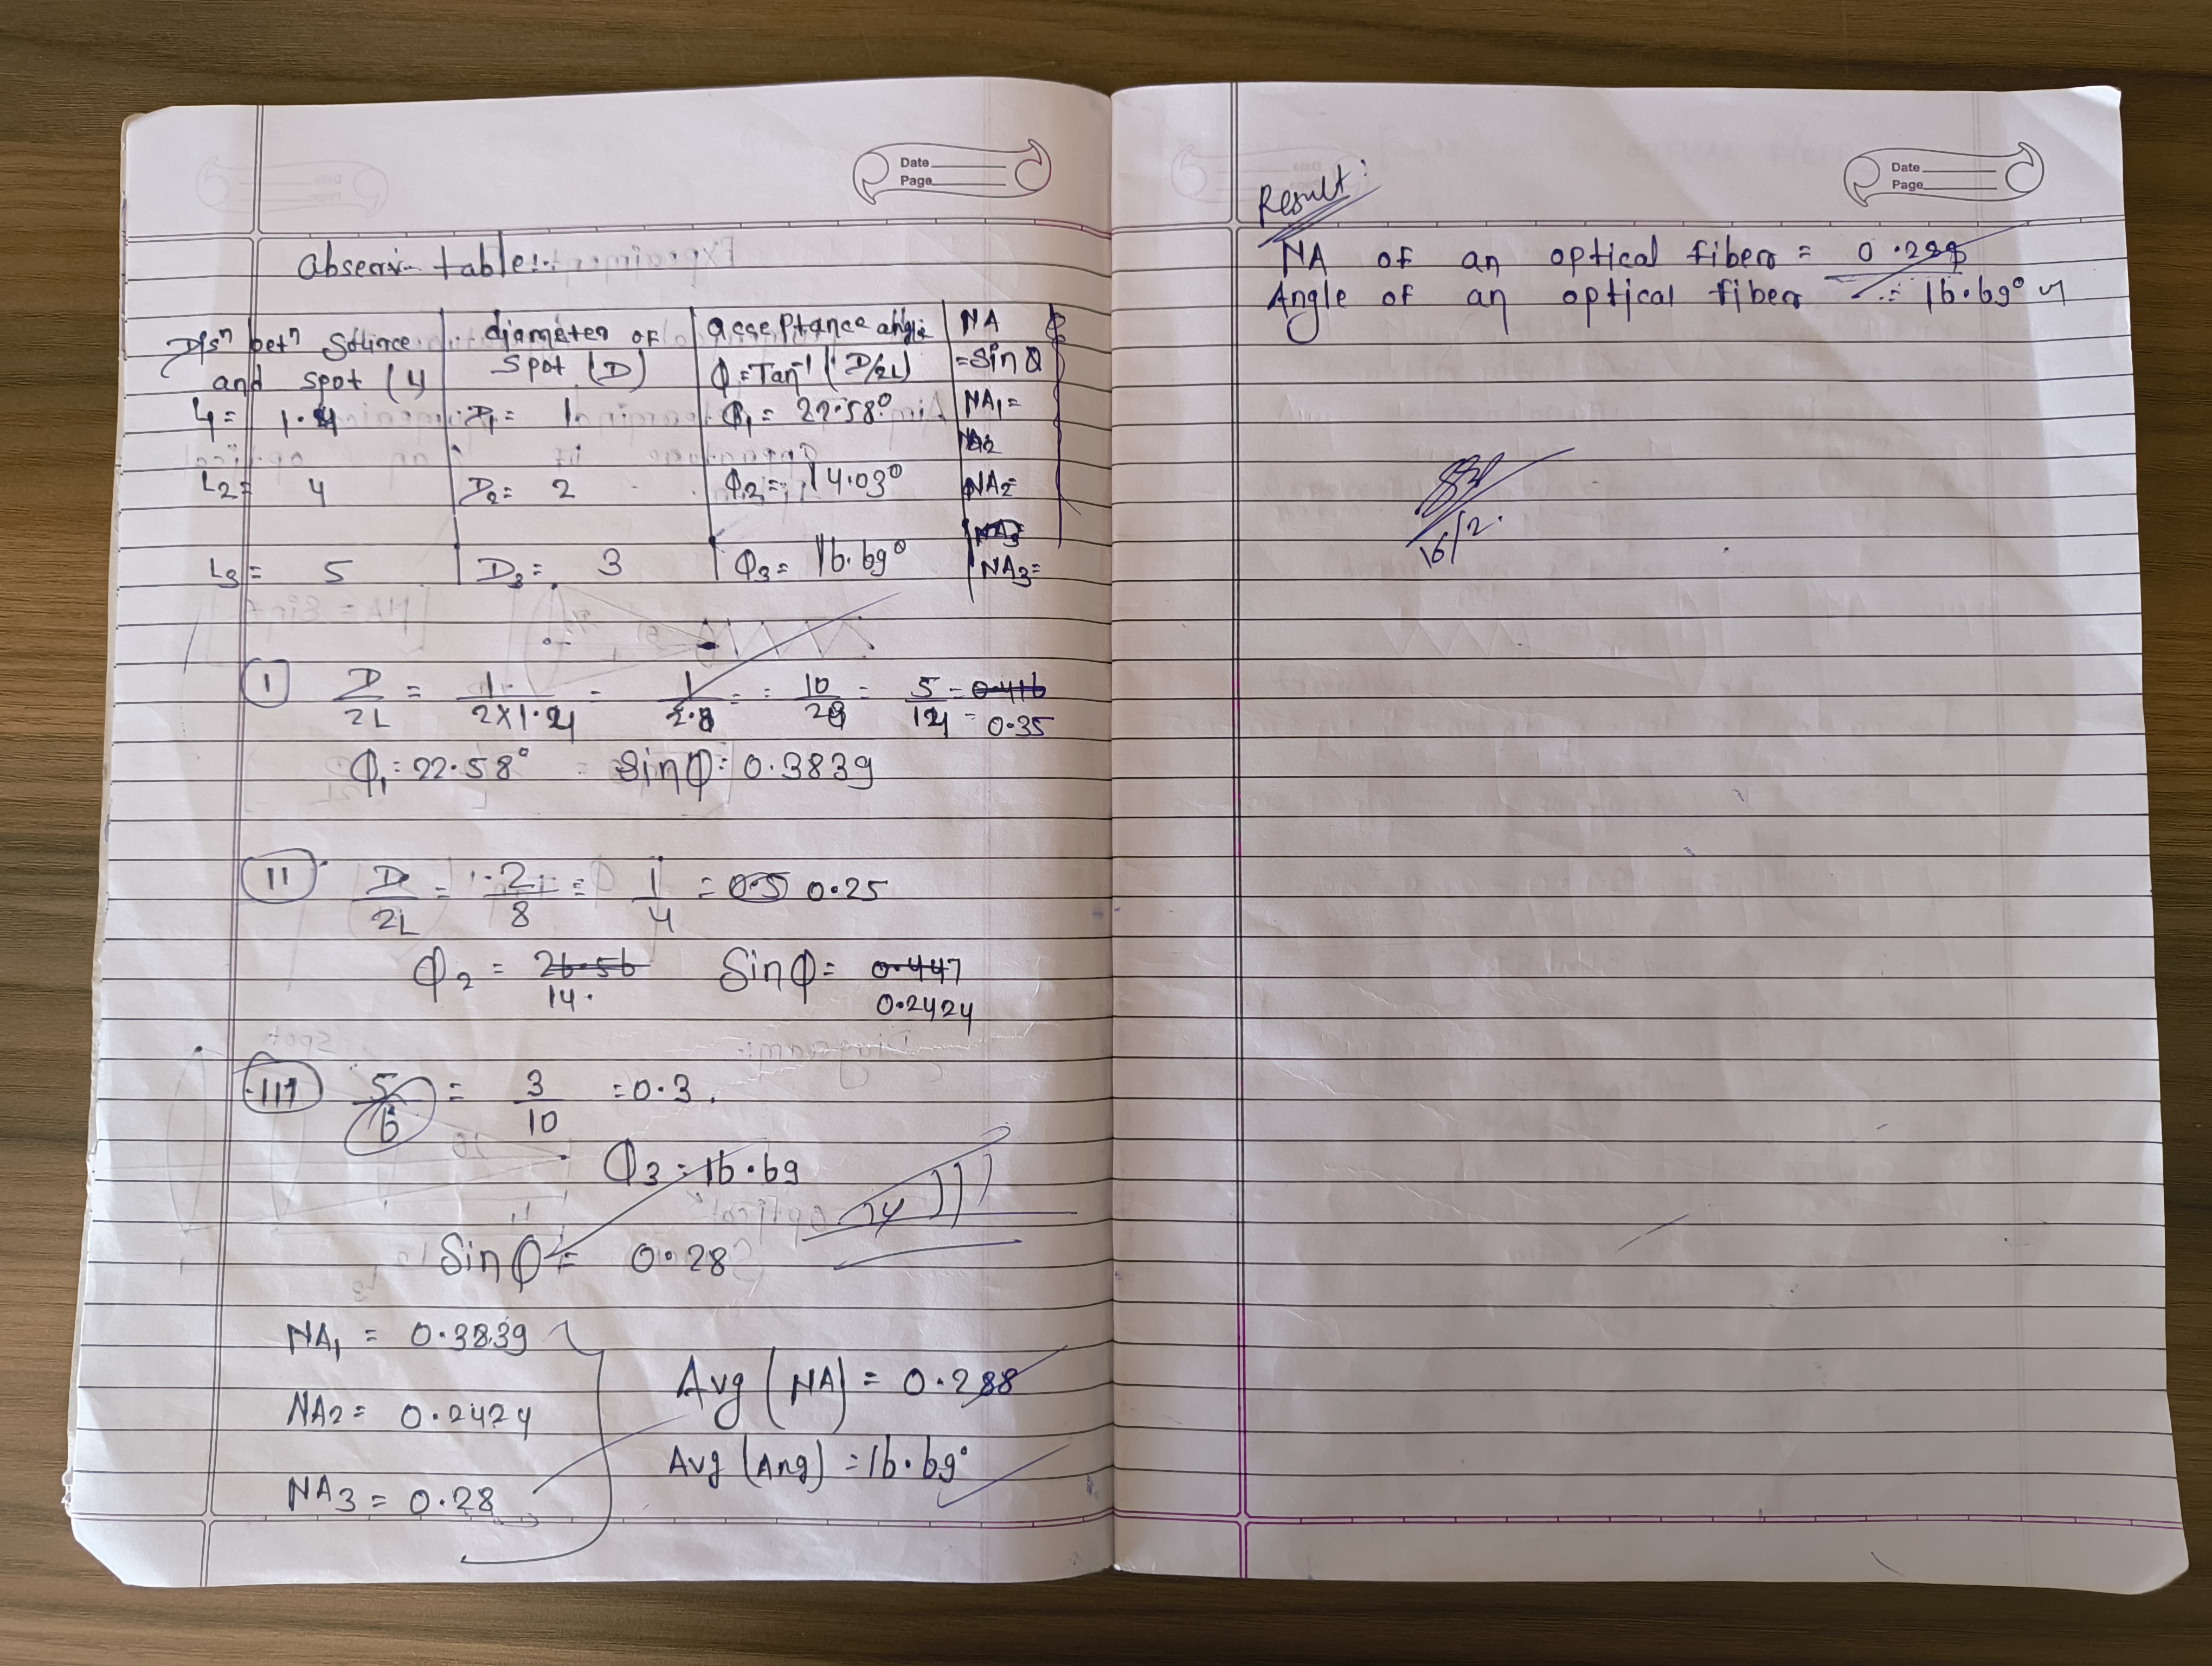 Date
Page
Observ. table:-
Disⁿ betⁿ Source and spot (L) | diameter of Spot (D) | acceptance angle ϕ = Tan⁻¹ (D/2L) | NA = Sin θ
L₁ = 1.4 | D₁ = 1 | ϕ₁ = 22.58° | NA₁ =
L₂ = 4 | D₂ = 2 | ϕ₂ = 14.03° | NA₂ =
L₃ = 5 | D₃ = 3 | ϕ₃ = 16.69° | NA₃ =
I D/2L = 1/2×1.4 = 1/2.8 = 10/28 = 5/14 = 0.416
= 0.35
ϕ₁ = 22.58° Sin ϕ = 0.3839
II D/2L = 2/8 = 1/4 = 0.5 0.25
ϕ₂ = 26.56 Sin ϕ = 0.447
14. 0.2424
III 5/6 = 3/10 = 0.3.
ϕ₃ = 16.69
Sin ϕ = 0.28
NA₁ = 0.3839
Avg (NA) = 0.288
NA₂ = 0.2424
Avg (Ang) = 16.69°
NA₃ = 0.28
Date
Page
Result:
NA of an optical fiber =
Angle of an optical fiber = 16.69°
16/2.